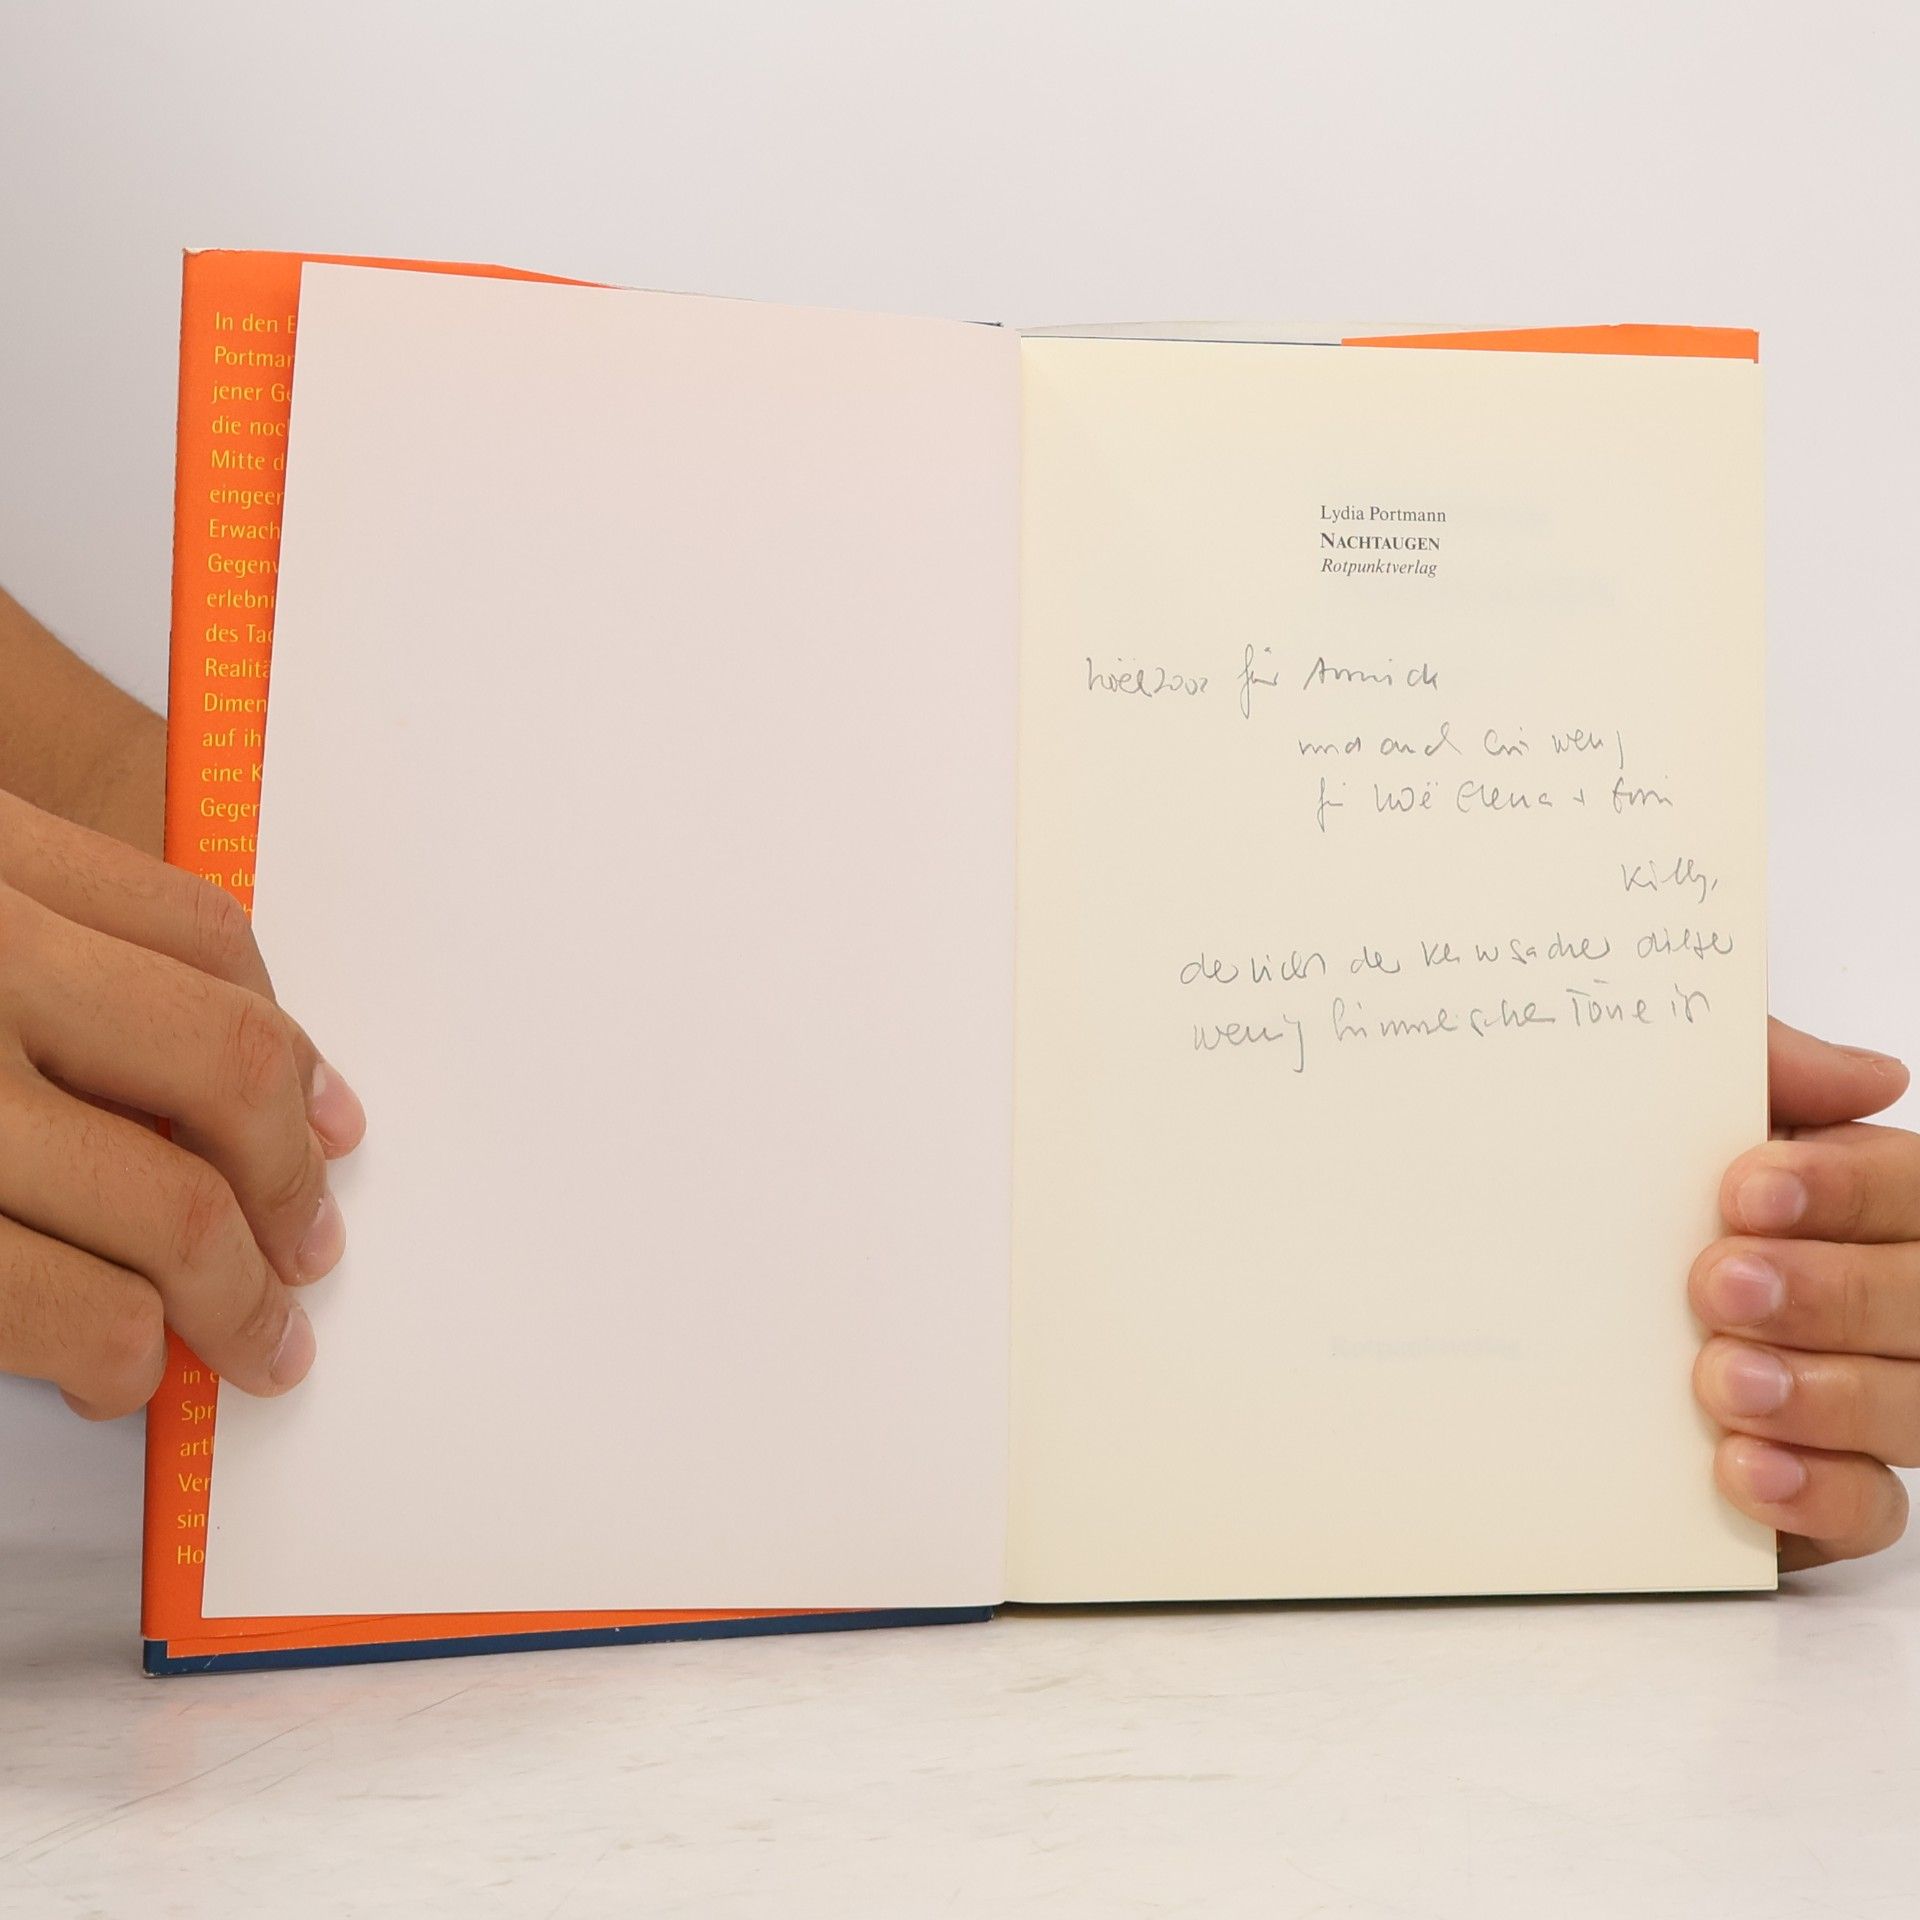 In den E
Portman
jener Ge
die noch
Mitte d
eingeen
Erwach
Gegenw
erlebni
des Tag
Realitä
Dimen
auf ih
eine K
Gegen
einstü
im du
in e
Spr
art
Ver
sin
Ho
Lydia Portmann
NACHTAUGEN
Rotpunktverlag
Noël 2002 für Annick
und auch ein wenig
für Noë Elena +
Killy,
der nicht der dieser
wenig himmlischen Töne ist